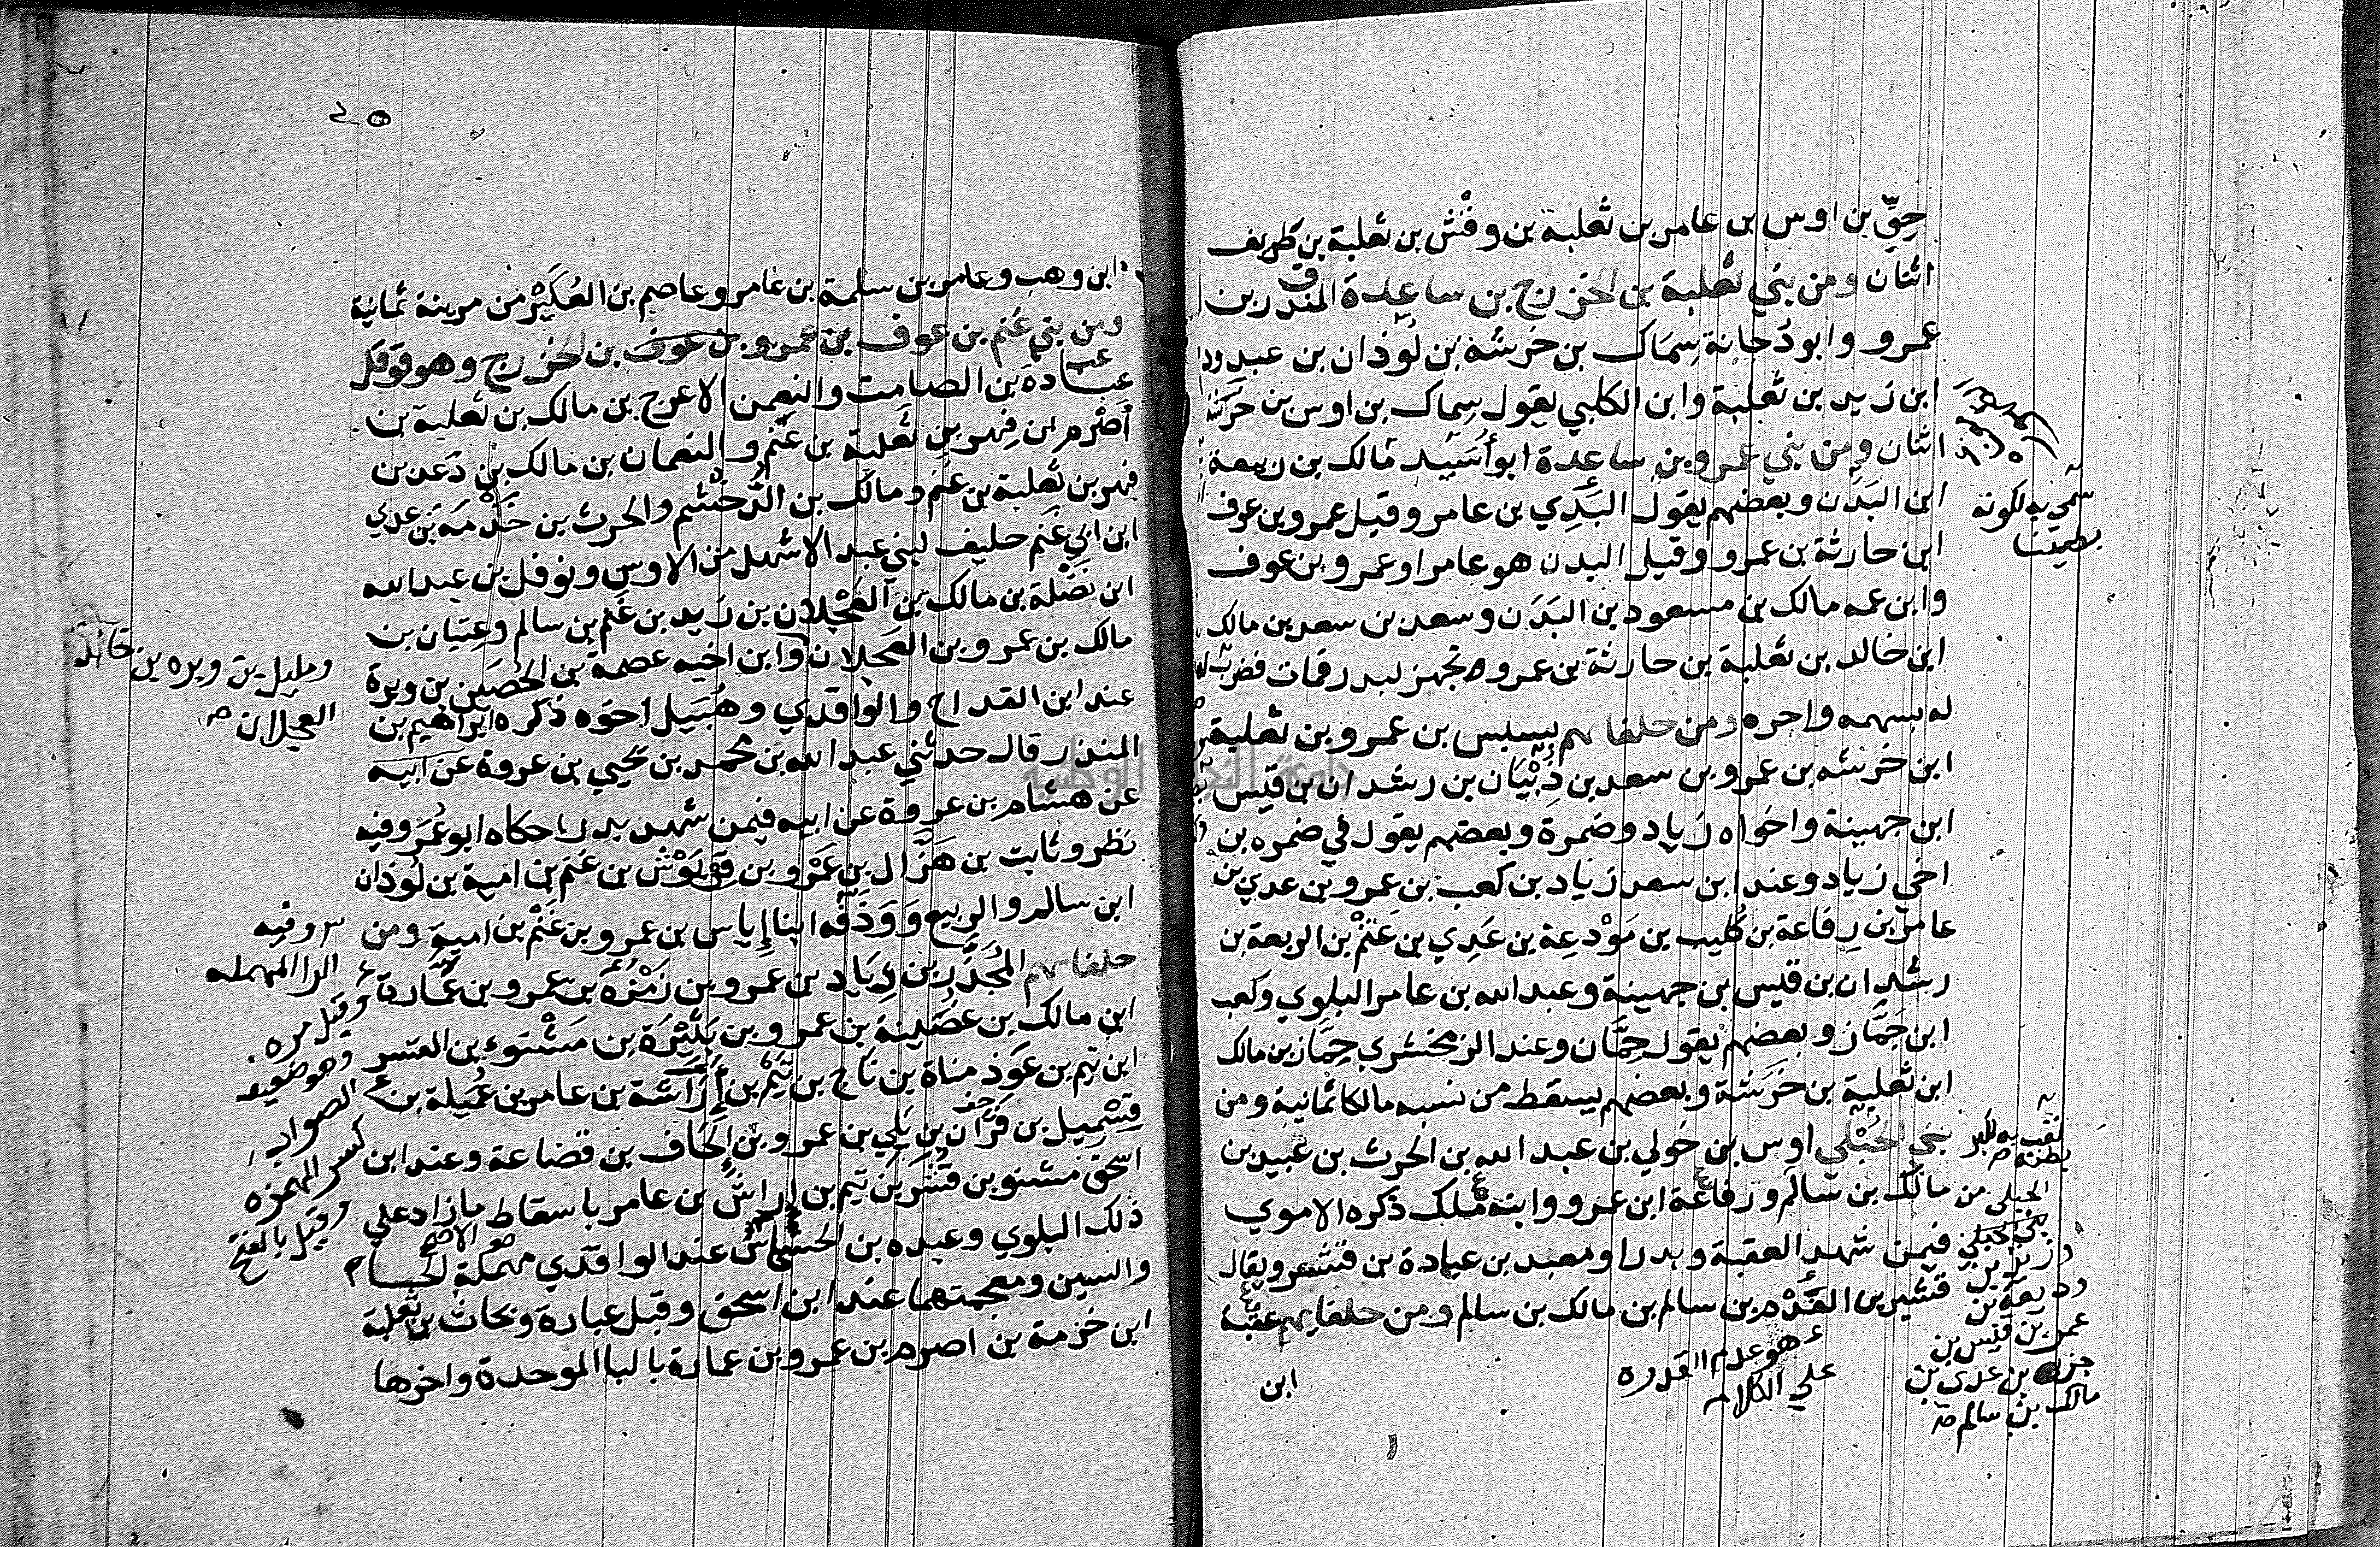 حِقِّ بن اوس بن عامر بن ثعلبة بن وقْش بن ثعلبة بن طريف
اثنان ومن بني ثعلبة بن الخزرج بن ساعدة المنذر بن
عمرو وابو دُجانة سِمَاك بن خَرشة بن لَوْذان بن عبد ود
ابن زيد بن ثعلبة وابن الكلبي يقول سِماك بن اوس بن خرشة
اثنان ومن بني عمرو بن ساعدة ابو أُسَيد مالك بن ربيعة
ابن البَدَن وبعضهم يقول البَدِي بن عامر وقيل عمرو بن عوف
ابن حارثة بن عمرو وقيل البدن هو عامر او عمرو بن عوف
وابن عمه مالك بن مسعود بن البَدَن وسعد بن سعد بن مالك
ابن خالد بن ثعلبة بن حارثة بن عمرو تجهز لبدر فمات فضرب
له بسهمه واجره ومن حلفايهم بسبس بن عمرو بن ثعلبة
ابن خَرشه بن عمرو بن سعد بن ذُبْيَان بن رشدان بن قيس
ابن جهينة واخواه زياد وضمرة وبعضهم يقول في ضمره بن
اخي زياد وعند ابن سعد زياد بن كعب بن عمرو بن عدي بن
عامر بن رِفاعة بن كُليب بن مَوْدعة بن عَدِي بن غَنْم بن الربعة بن
رشدان بن قيس بن جهينة وعبد الله بن عامر البلوي وكعب
ابن جَمَّاز وبعضهم يقول حِمَّان وعند الزمخشري حِمَّاز بن مالك
ابن ثعلبة بن خَرَشة وبعضهم يسقط من نسبه مالكا ثمانية ومن
بني الحُبْلي اوس بن خَولي بن عبد الله بن الحرث بن عبيد بن
مالك بن سالم ورفاعة ابن عمرو وابنه مُلك ذكره الاموي
فيمن شهد العقبة وبدرا ومعبد بن عبادة بن قشعر ويقال
قشير بن الفَدْم بن سالم بن مالك بن سالم ومن حلفايهم عقبة
ابن
سمي به لكونه
بطينا
لقب به لكبر
بطنه
وديعة بن
عمرو بن قيس بن
جزء بن عدي بن
مالك بن سالم
هو عدم القدره
علي الكلام
٤٥
ابن وهب وعامر بن سلمة بن عامر وعاصم بن العُكَيْر من مزينة ثمانية
ومن بني غنم بن عوف بن عمرو بن عوف بن الخزرج وهو قوقل
عبادة بن الصامت والنعمن الاعرج بن مالك بن ثعلبة بن
أصْرم ابن فِهر بن ثعلبة بن غنم والنعمان بن مالك بن دَعد بن
فهر بن ثعلبة بن غنم ومالك بن الدُّخشم والحرث بن خَزْمة بن عدي
ابن ابي غَنم حليف لبني عبد الاشهل من الاوس ونوفل بن عبد الله
ابن نَضْلة بن مالك بن العَجْلان بن زيد بن غَنم بن سالم وعِتبان بن
مالك بن عمرو بن العجلان وابن اخيه عصمة بن الحُصَين بن وبرة
عند ابن القداح والواقدي وهُبَيل اخوه ذكره ابراهيم بن
المنذر قال حدثني عبد الله بن محمد بن يحيي بن عروة عن ابيه
عن هشام بن عروة عن ابيه فيمن شهد بدرا حكاه ابو عُمَر وفيه
نظر وثابت بن هَزَّال بن عَمْرو بن قِرْيَوْش بن غَنم بن امية بن لَوْذان
ابن سالم والربيع ووَذَفَة ابنا إِياس بن عمرو بن غَنْم بن امية ومن
حلفايهم المُجَذَّر بن ذِيَاد بن عمرو بن زَمْزَمه بن عمرو بن عَمَّارة
ابن مالك بن غُصَينة بن عمرو بن بَثِيْرَة بن مَشْنوء بن القشر
ابن تيم بن عَوذ مناة بن ناج بن تَيْم بن إِرَاشة بن عامر بن عَبيلة بن
قِسْمِيل بن فَرَّان بن بَلِي بن عمرو بن الحَاف بن قضاعة وعند ابن
اسحق مشنو بن قشر بن تيم بن اراش بن عامر باسقاط ما زاد علي
ذلك البلوي وعبده بن الحسحاس عند الواقدي مهملة الحاء
والسين ومعجمتهما عند ابن اسحق وقيل عبادة ونحاث بن ثعلبة
ابن خزمة بن اصرم بن عمرو بن عمارة بالبا الموحدة واخرها
ومليل بن وبره بن خالد
العجلان
وفيه
الرا المهمله
وقيل مره
وهو ضعيف
الصواب
كسر الهمزه
وقيل بالفتح
هو الاصح